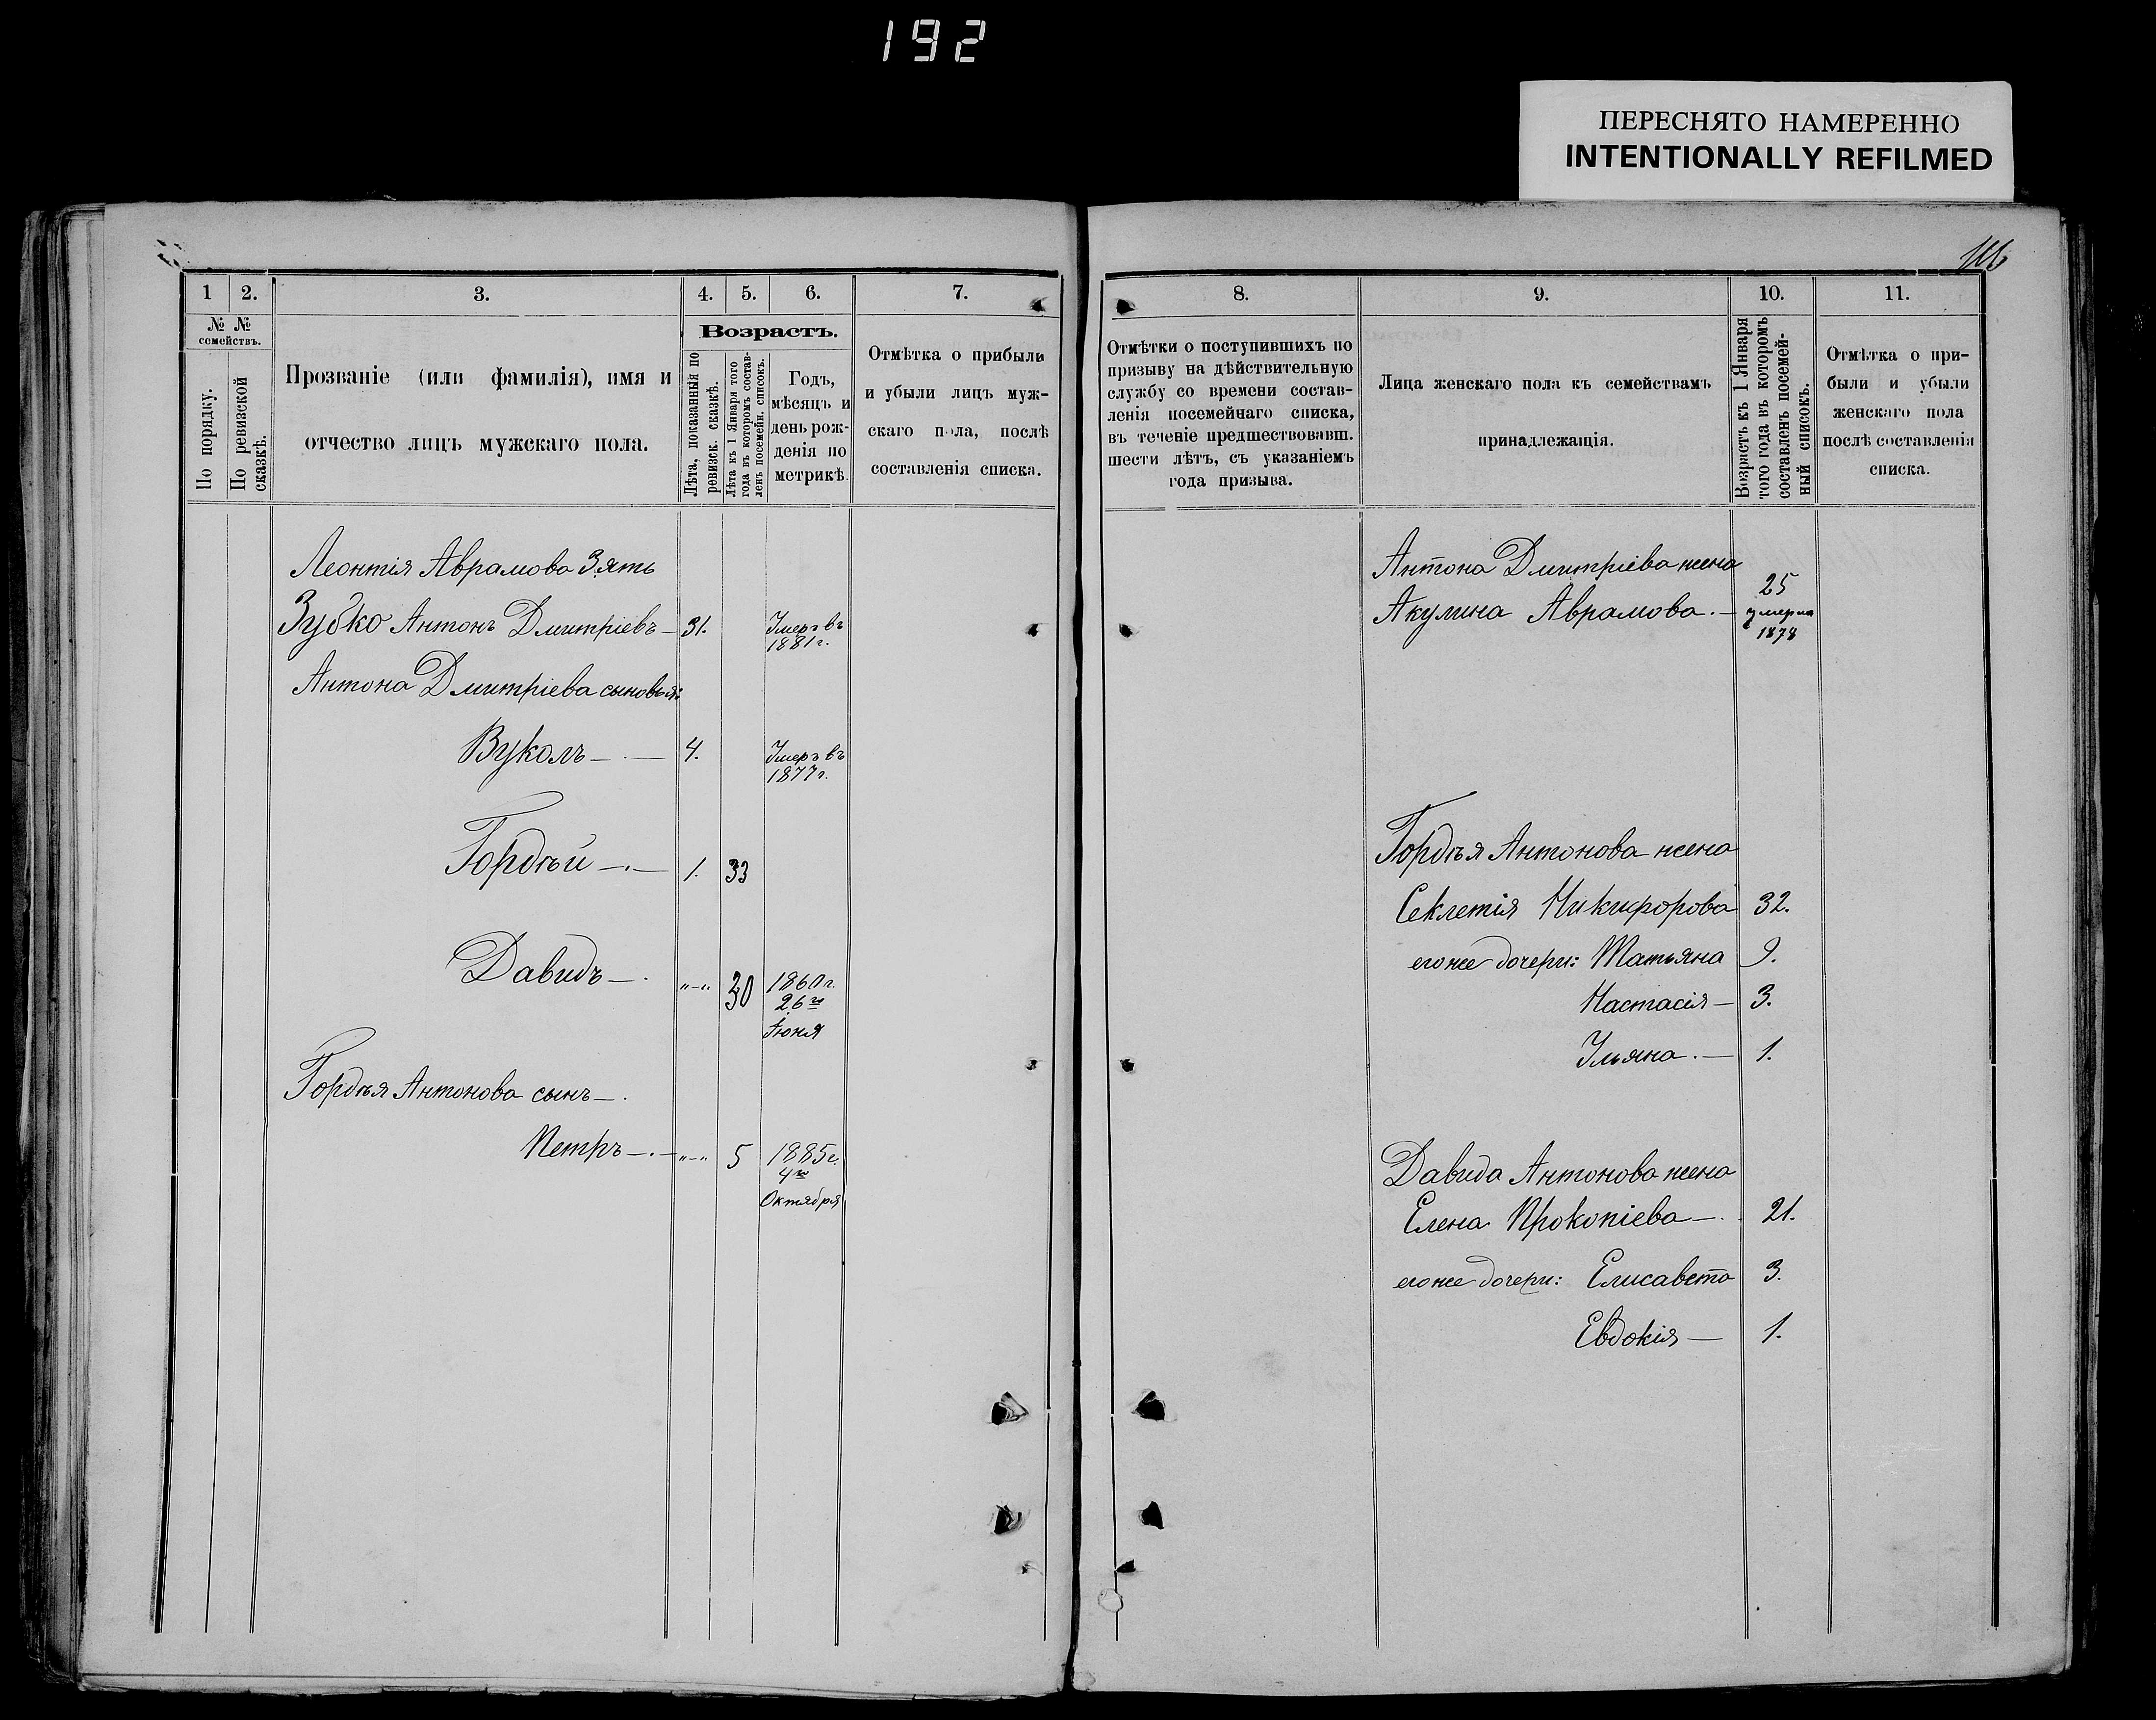 192
ПЕРЕСНЯТО НАМЕРЕННО
INTENTIONALLY REFILMED
1
2.
3.
4.
5.
6.
7.
№ №
семействъ.
По порядку.
По ревизской
сказкѣ.
Прозваніе (или фамилія), имя и
отчество лицъ мужскаго пола.
Возрастъ.
Лѣта, показанныя по
ревизск. сказкѣ.
Лѣта къ 1 Января того
года въ которомъ состав-
ленъ посемейн. списокъ.
Годъ,
мѣсяцъ и
день рож-
денія по
метрикѣ.
Отмѣтка о прибыли
и убыли лицъ муж-
скаго пола, послѣ
составленія списка.
Леонтія Аврамова Зять
Зубко Антонъ Дмитріевъ — 31. Умеръ въ
1881 г.
Антона Дмитріева сыновья:
Вуколъ — . — 4. Умеръ въ
1877 г.
Гордѣй — . — 1. 33
Давидъ — . „—„ 30 1860 г.
26го
Іюня
Гордѣя Антонова сынъ — .
Петръ — . — „—„ 5 1885 г.
4го
Октября
8.
9.
10.
11.
Отмѣтки о поступившихъ по
призыву на дѣйствительную
службу со времени состав-
ленія посемейнаго списка,
въ теченіе предшествовавш.
шести лѣтъ, съ указаніемъ
года призыва.
Лица женскаго пола къ семействамъ
принадлежащія.
Возрастъ къ 1 Января
того года въ которомъ
составленъ посемей-
ный списокъ.
Отмѣтка о при-
были и убыли
женскаго пола
послѣ составленія
списка.
Антона Дмитріева жена
Акулина Аврамова . — 25
умерла
1878
Гордѣя Антонова жена
Секлетія Никифорова 32.
его же дочери: Татьяна 9.
Настасія — 3.
Ульяна . — 1.
Давида Антонова жена
Елена Прокопіева — . 21.
его же дочери: Елисавета 3.
Евдокія — 1.